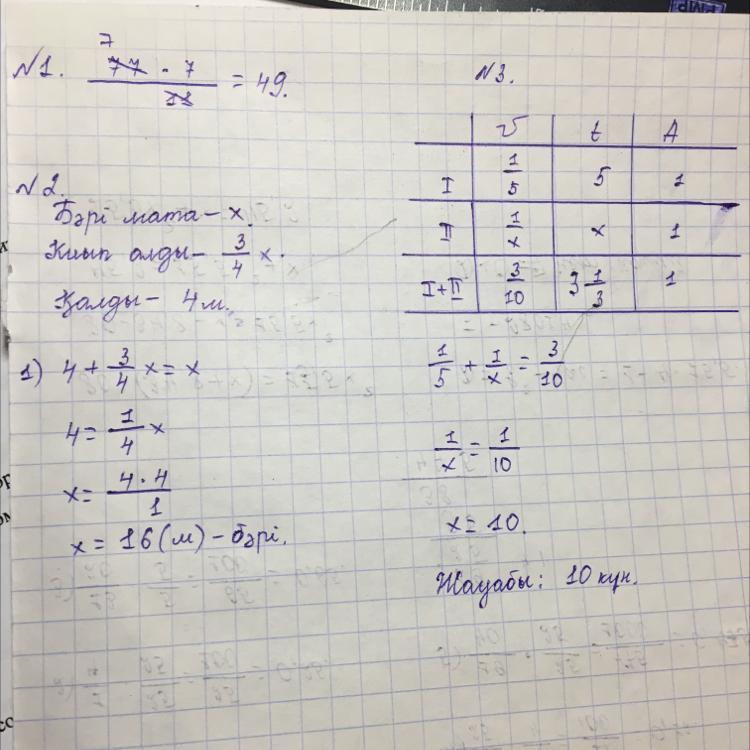 №1. (77 · 7) / 11 = 49.
7
№2.
Бәрі мата – x.
Киып алды – 3/4 x.
Қалды – 4 м.
1) 4 + 3/4 x = x
4 = 1/4 x
x = (4 · 4) / 1
x = 16 (м) – бәрі.
№3.
v t A
I 1/5 5 1
II 1/x x 1
I+II 3/10 3 1/3 1
1/5 + 1/x = 3/10
1/x = 1/10
x = 10.
Жауабы: 10 күн.